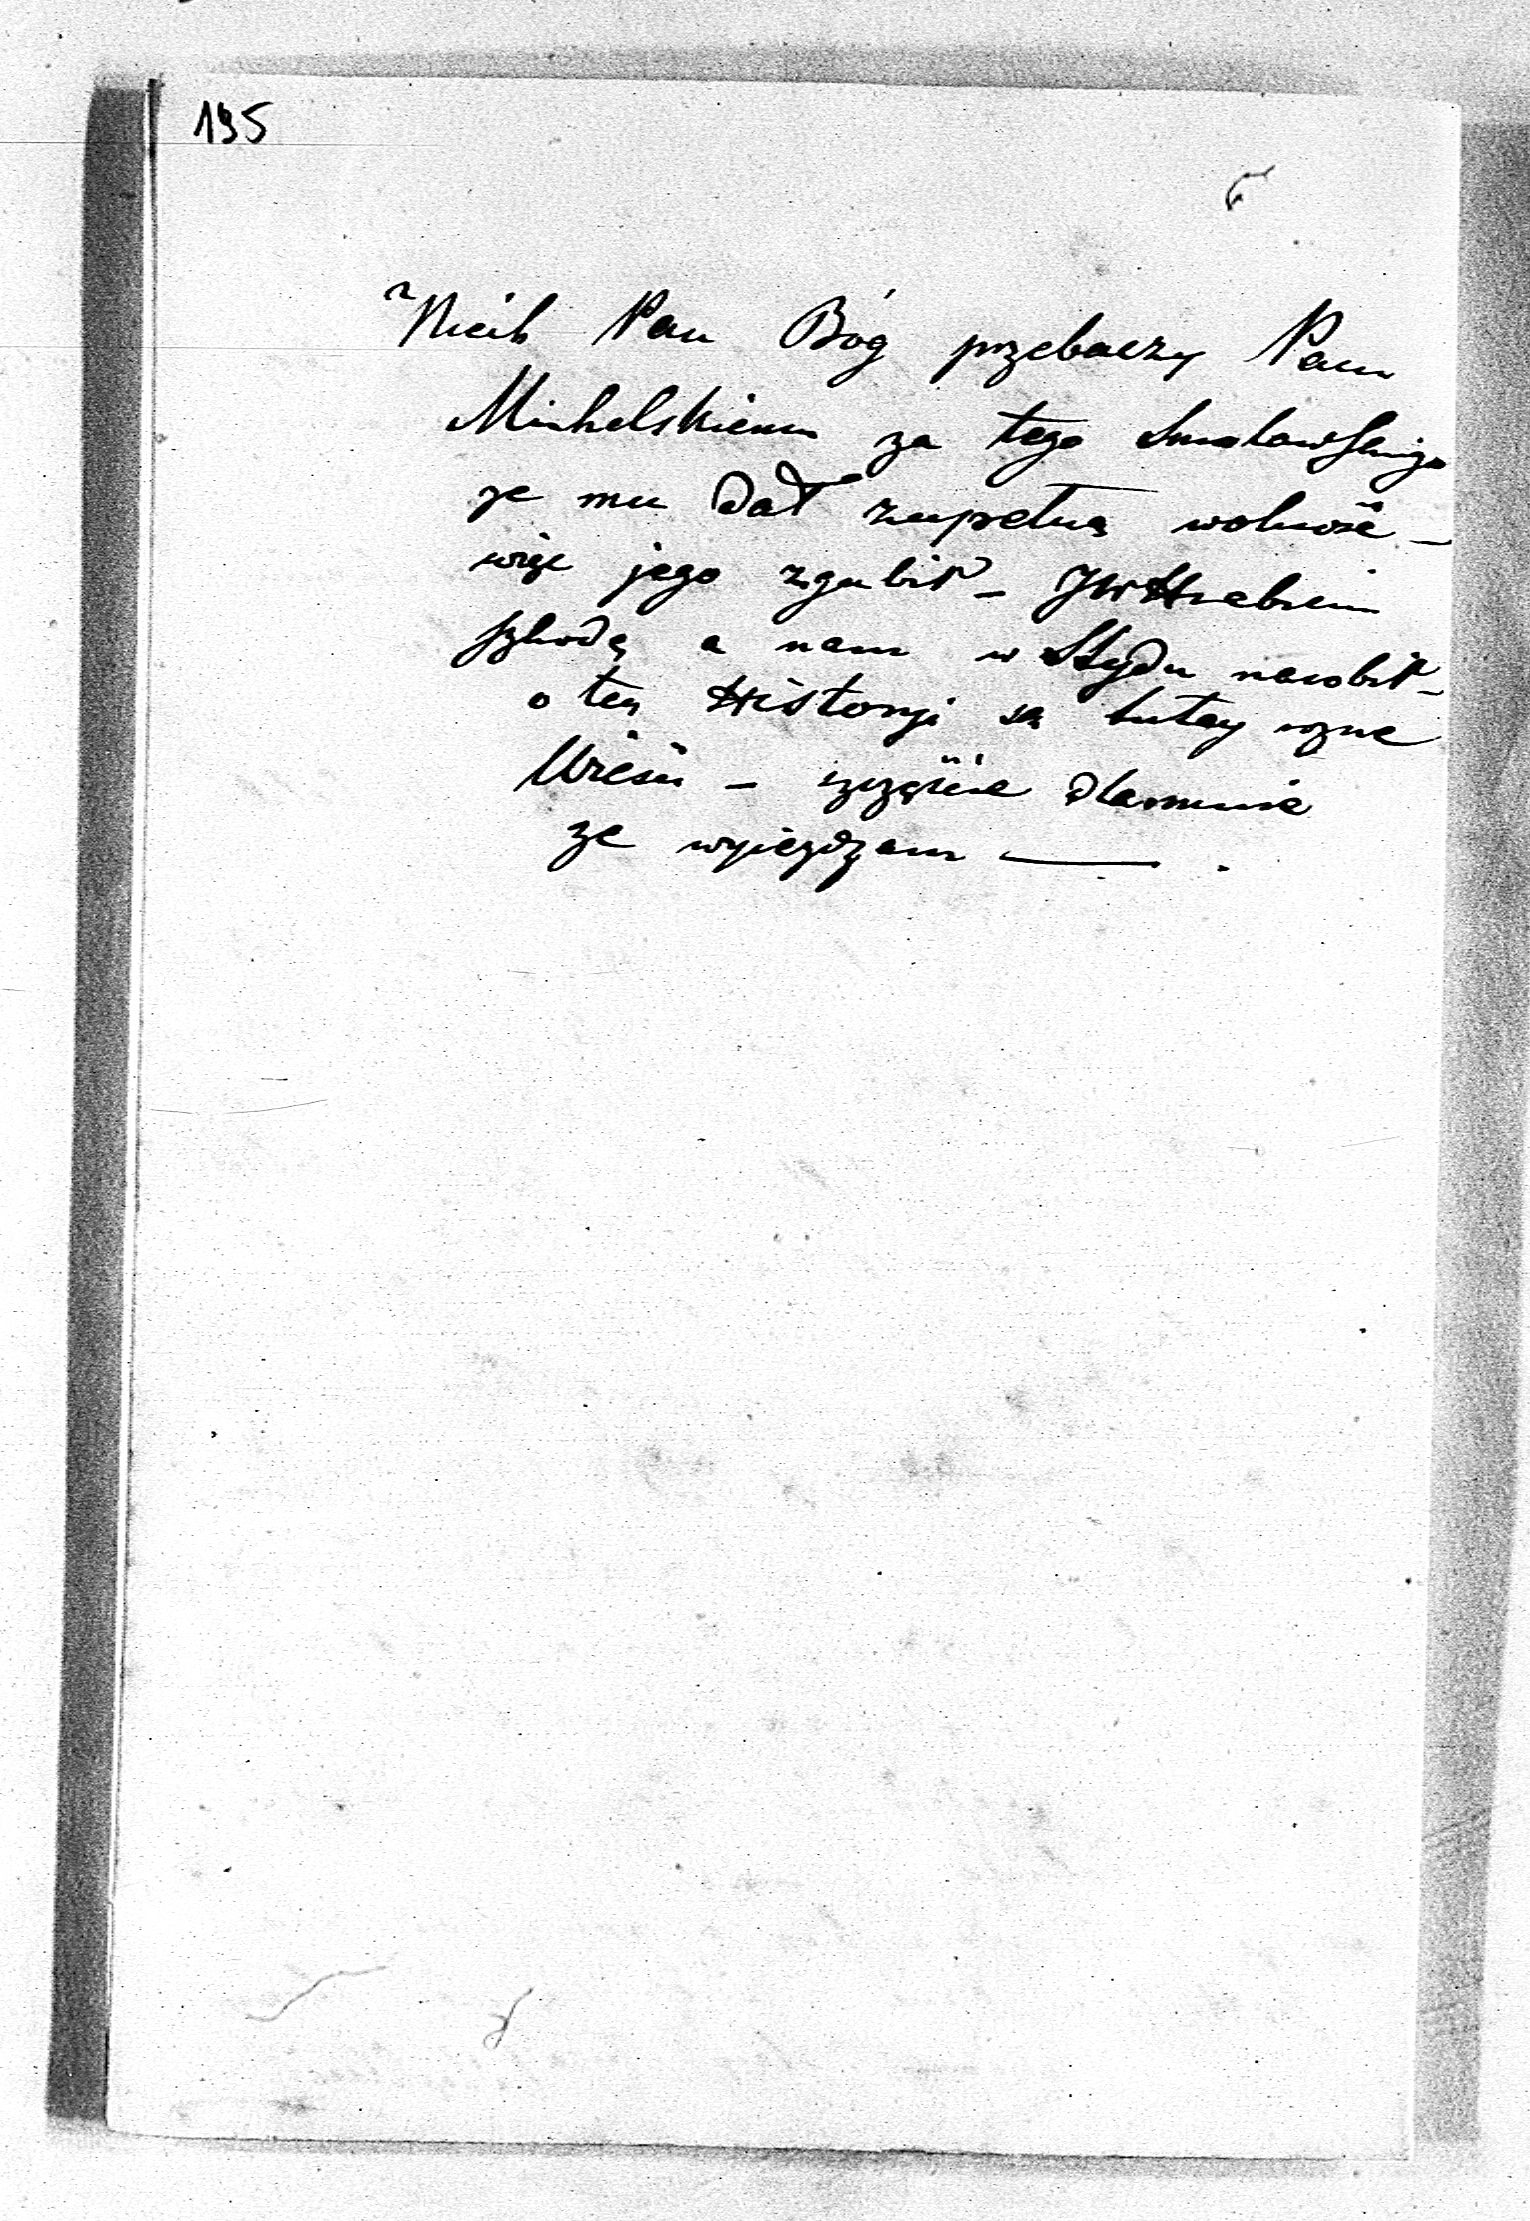 195
Niech Pan Bóg przebaczy Panu
Michelskiemu za tego
ze mu dał zupełną wolność –
więc jego zgubił – JWHrabiemu
szkodą a nam wstydu narobił –
o tey Historyi są tutay rożne
Wieści – szczęście dla mnie
ze wyiezdzam — .